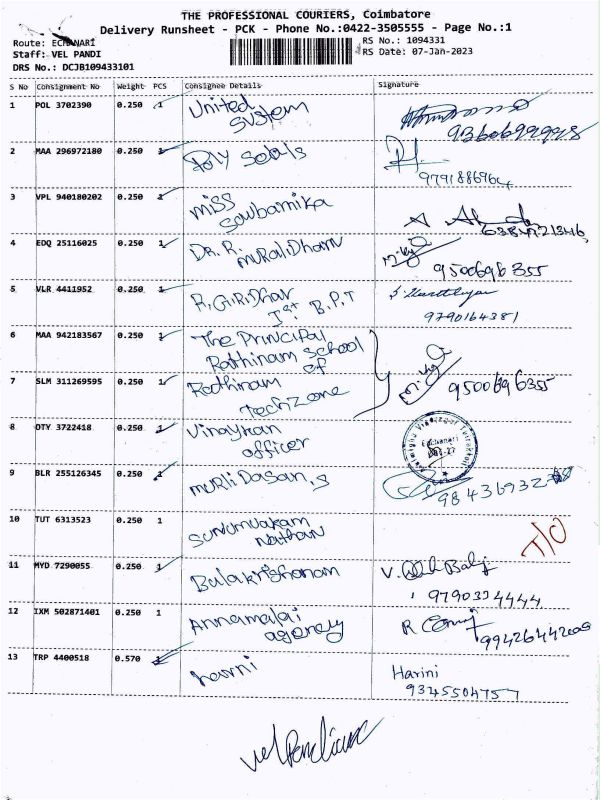 THE PROFESSIONAL COURIERS, Coimbatore
Delivery Runsheet - PCK - Phone No.:0422-3505555 - Page No.:1
Route: ECHANARI
Staff: VEL PANDI
DRS No.: DCJB109433101
RS No.: 1094331
RS Date: 07-Jan-2023
S No Consignment No Weight PCS Consignee Details Signature
1 POL 3702390 0.250 1 United
System
2 MAA 296972180 0.250 1 Poly Seals
9791886964
3 VPL 940180202 0.250 1 Miss
Sowbarnika
4 EDQ 25116025 0.250 1 DR. R.
Muralidharn
9500696355
5 VLR 4411952 0.250 1 R. Giridhar
Ist B.P.T
9790164381
6 MAA 942183567 0.250 1 The Principal
Rathinam School
of
7 SLM 311269595 0.250 1 Rathinam
TechZone
9500696355
8 OTY 3722418 0.250 1 Vinaykan
officer
Echanari
9 BLR 255126345 0.250 1 Murli Dasan, S
10 TUT 6313523 0.250 1
Nathan
T/O
11 MYD 7290055 0.250 1 Balakrishanam V.
9790334444
12 IXM 502871401 0.250 1 Annamalai
agency
R
13 TRP 4400518 0.570 1 harni Harini
9345504757